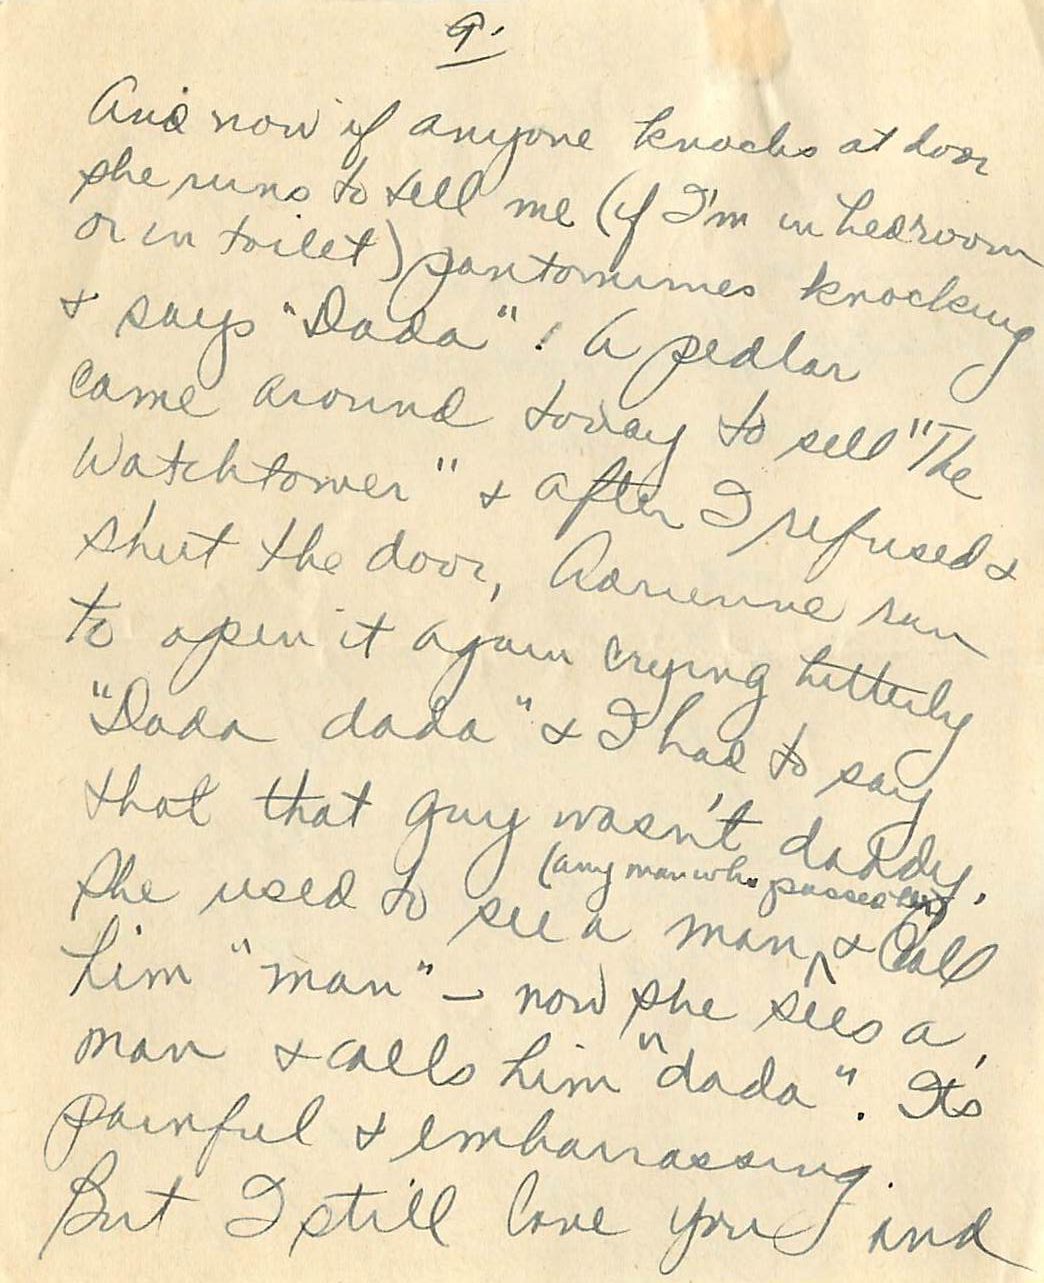 9.
And now if anyone knocks at door
she runs to tell me (if I'm in bedroom
or in toilet) pantomimes knocking
& says "Dada"! A pedlar
came around today to sell "The
Watchtower" & after I refused &
shut the door, Adrienne ran
to open it again crying bitterly
"Dada dada" & I had to say
that that guy wasn't daddy.
(any man who passed by)
She used to see a man, & call
him "man" – now she sees a
man & calls him "dada". It's
painful & embarrassing.
But I still love you and